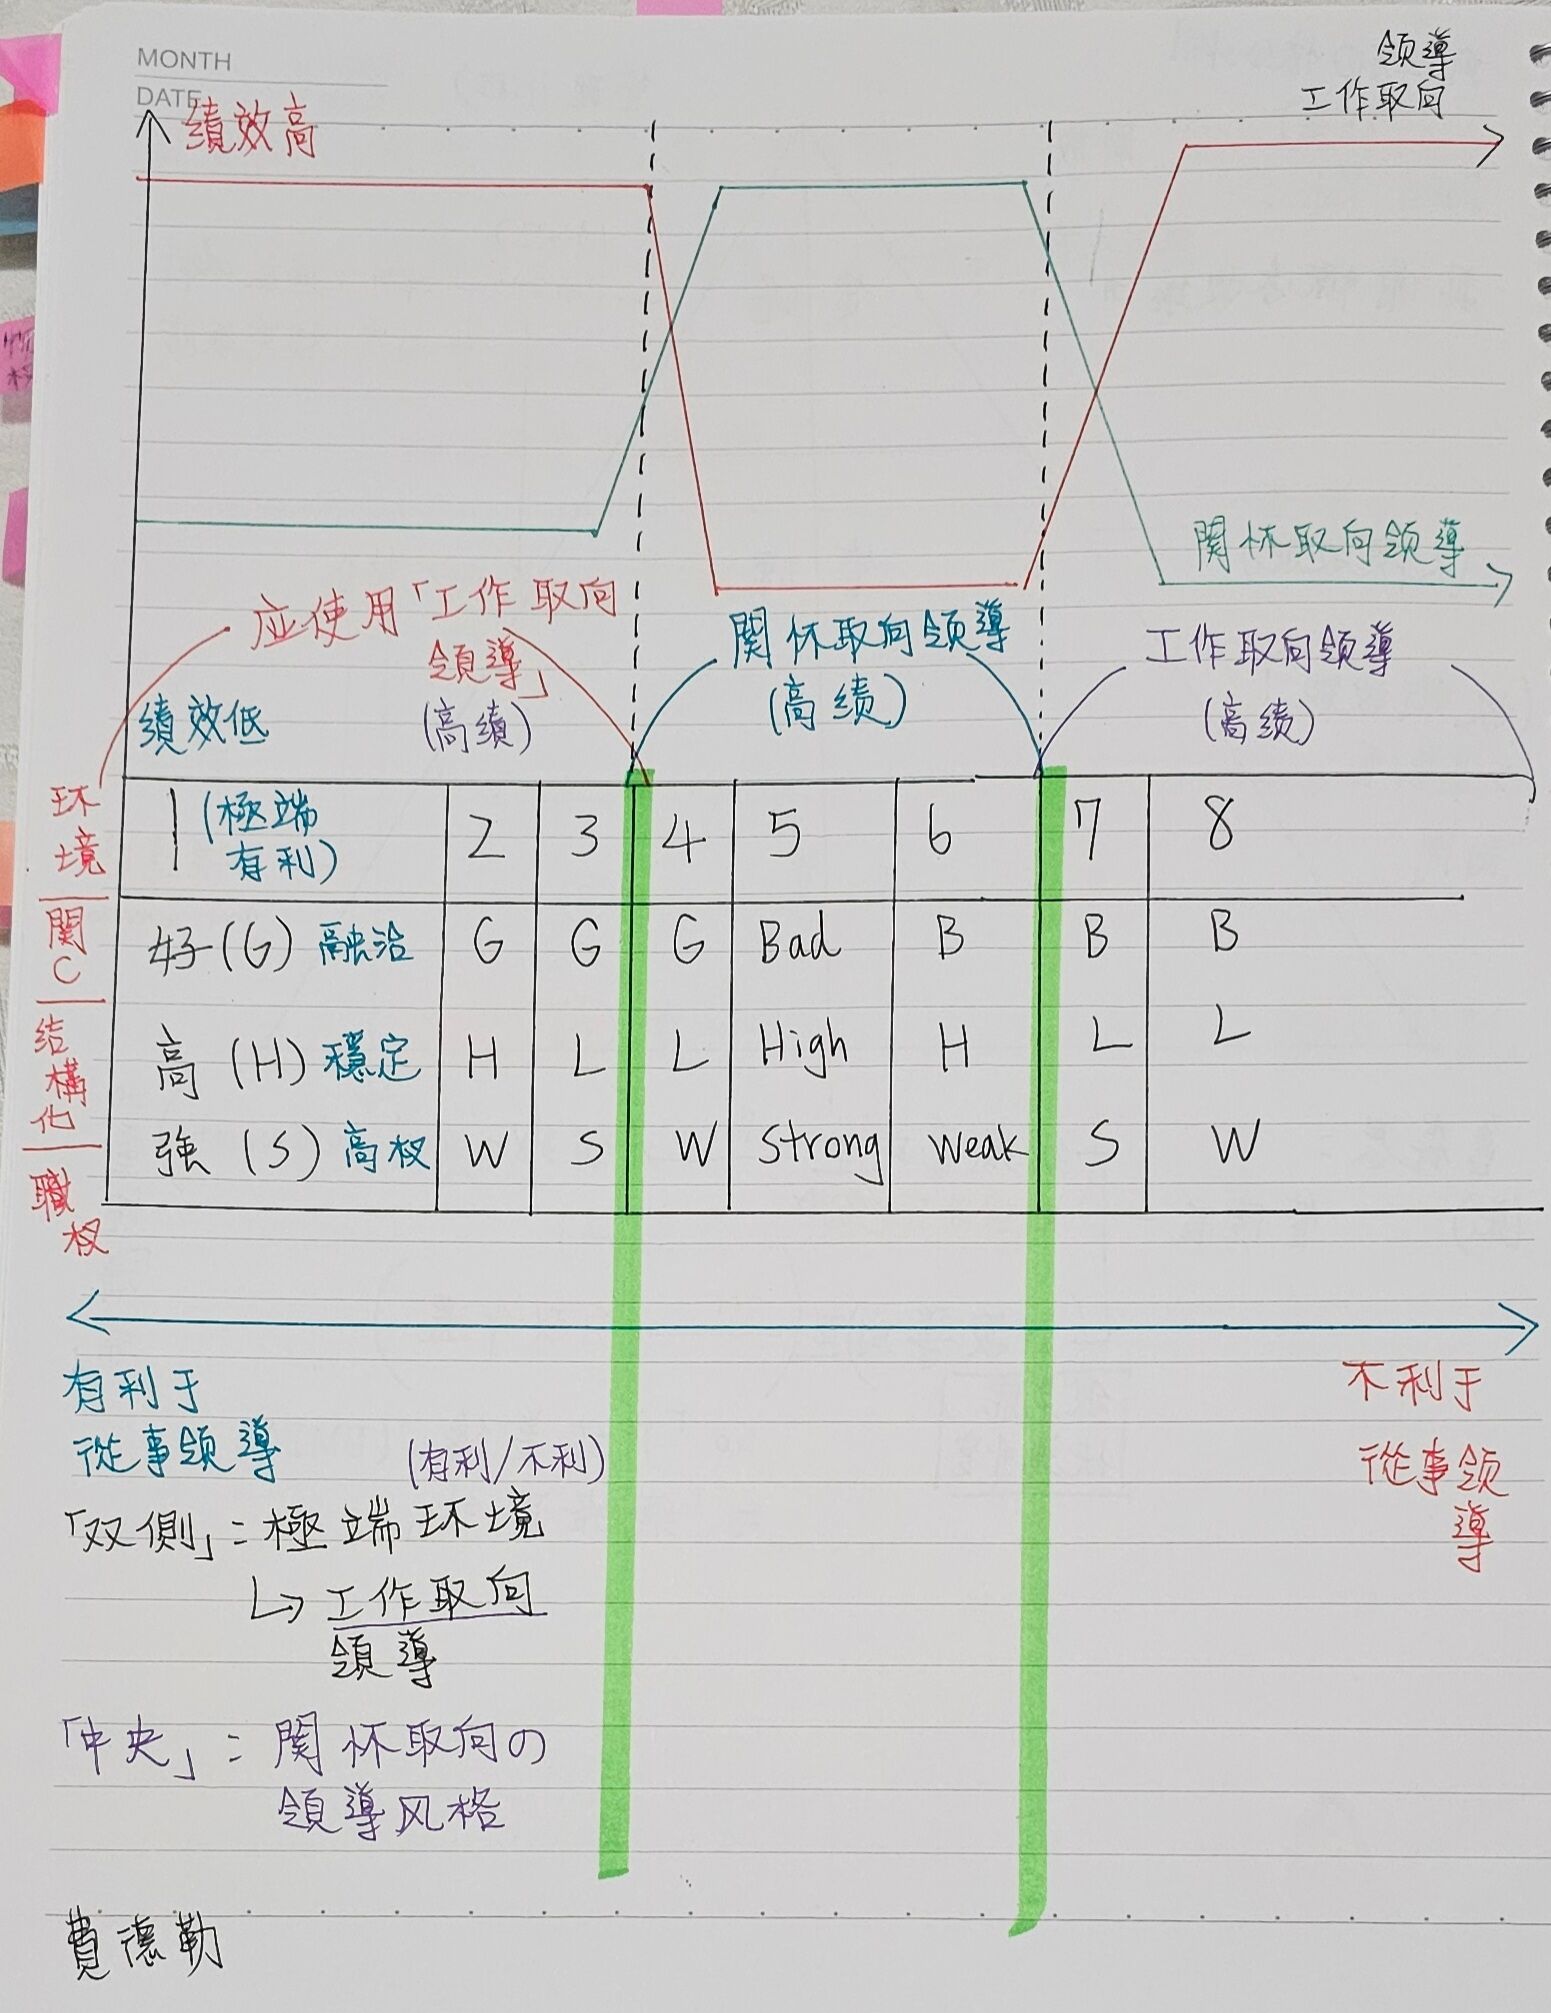 MONTH
DATE
領導
工作取向
績效高
関怀取向领導
应使用「工作取向
領導」
(高績)
績效低
関怀取向领導
(高绩)
工作取向领導
(高绩)
环境
1 (極端有利) 2 3 4 5 6 7 8
関C
好(G) 融洽 G G G Bad B B B
結構化
高 (H) 穩定 H L L High H L L
職权
強 (S) 高权 W S W Strong Weak S W
有利于
從事领導
不利于
從事领
導
(有利/不利)
「双側」: 極端环境
↳ 工作取向
領導
「中央」: 関怀取向の
領導风格
費德勒